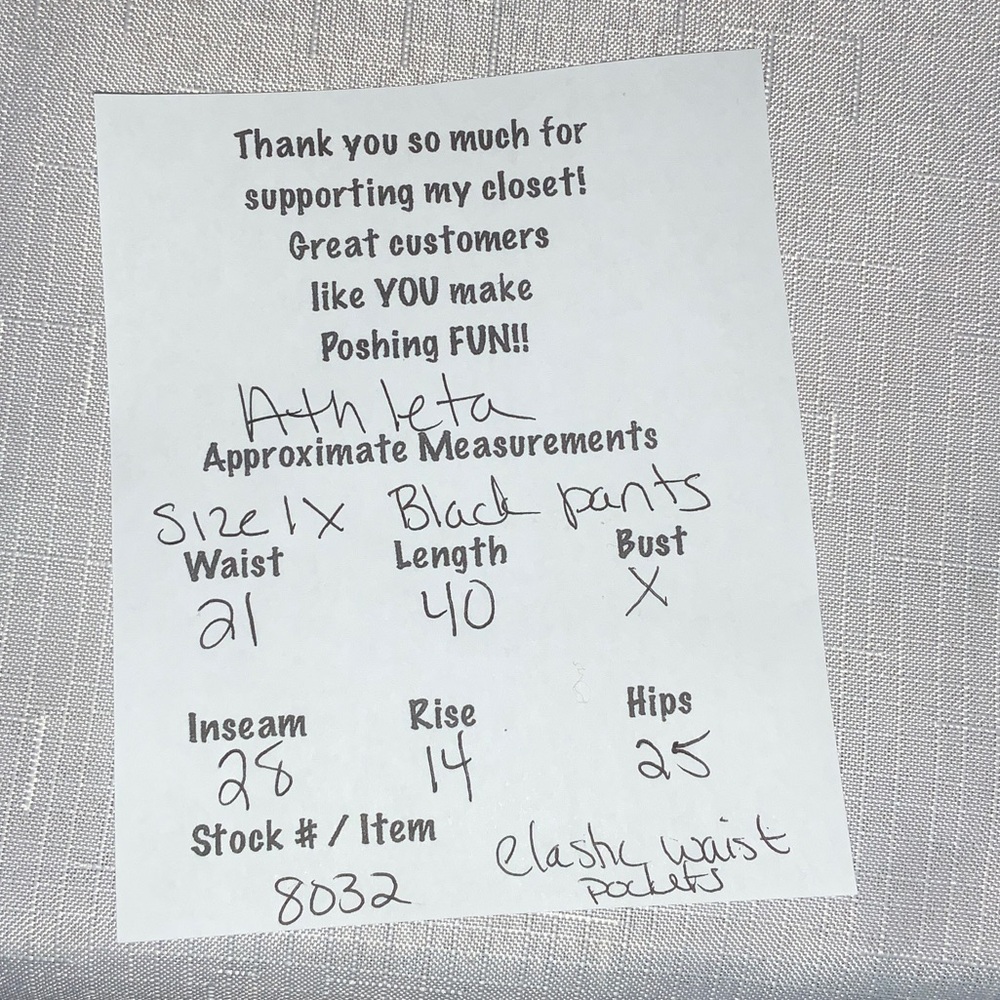 Thank you so much for
supporting my closet!
Great customers
like YOU make
Poshing FUN!!
Athleta
Approximate Measurements
Size 1X Black pants
Waist Length Bust
21 40 X
Inseam Rise Hips
28 14 25
Stock # / Item
elastic waist
pockets
8032